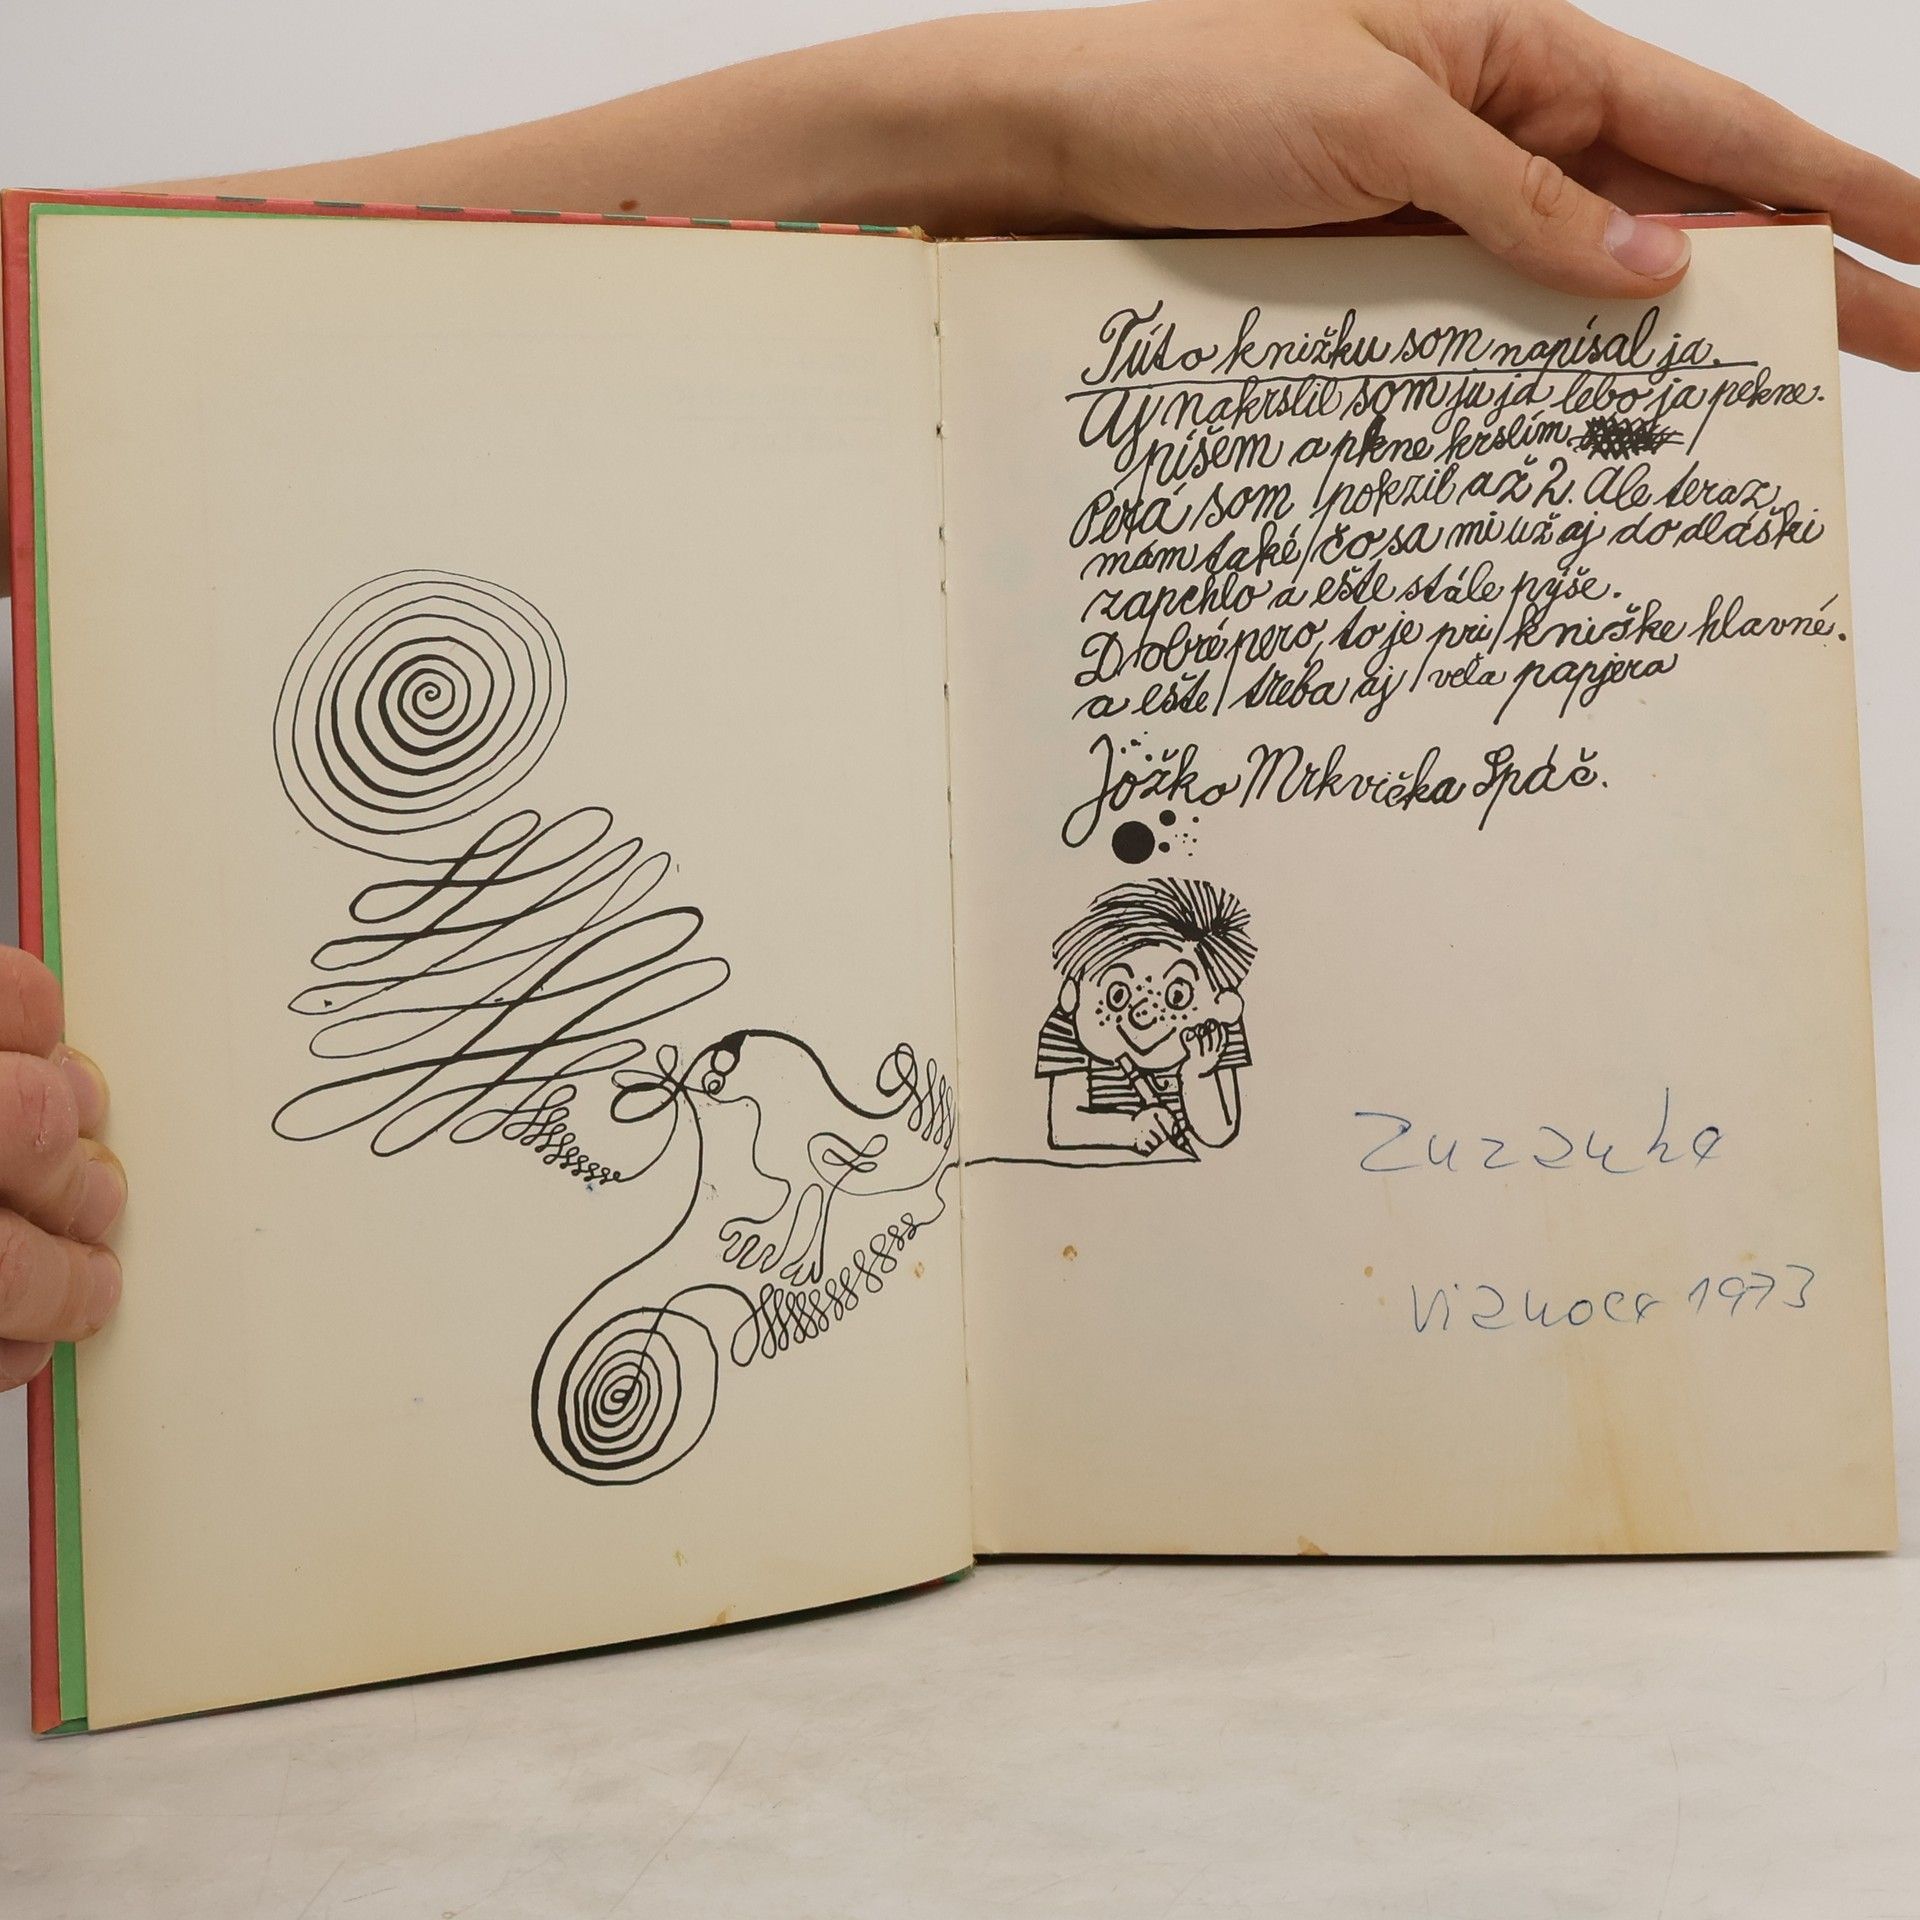 Túto knižku som napísal ja.
Aj nakrslil som ju ja lebo ja pekne.
píšem a pkne krslím
Perá som pokzil až 2. Ale teraz
mám také čo sa mi už aj do dláški
zapchlo a ešte stále pýše.
Dobré pero, to je pri kniške hlavné.
a ešte treba aj veľa papjera
Jožko Mrkvička Spáč.
Zuzanka
Vianoce 1973